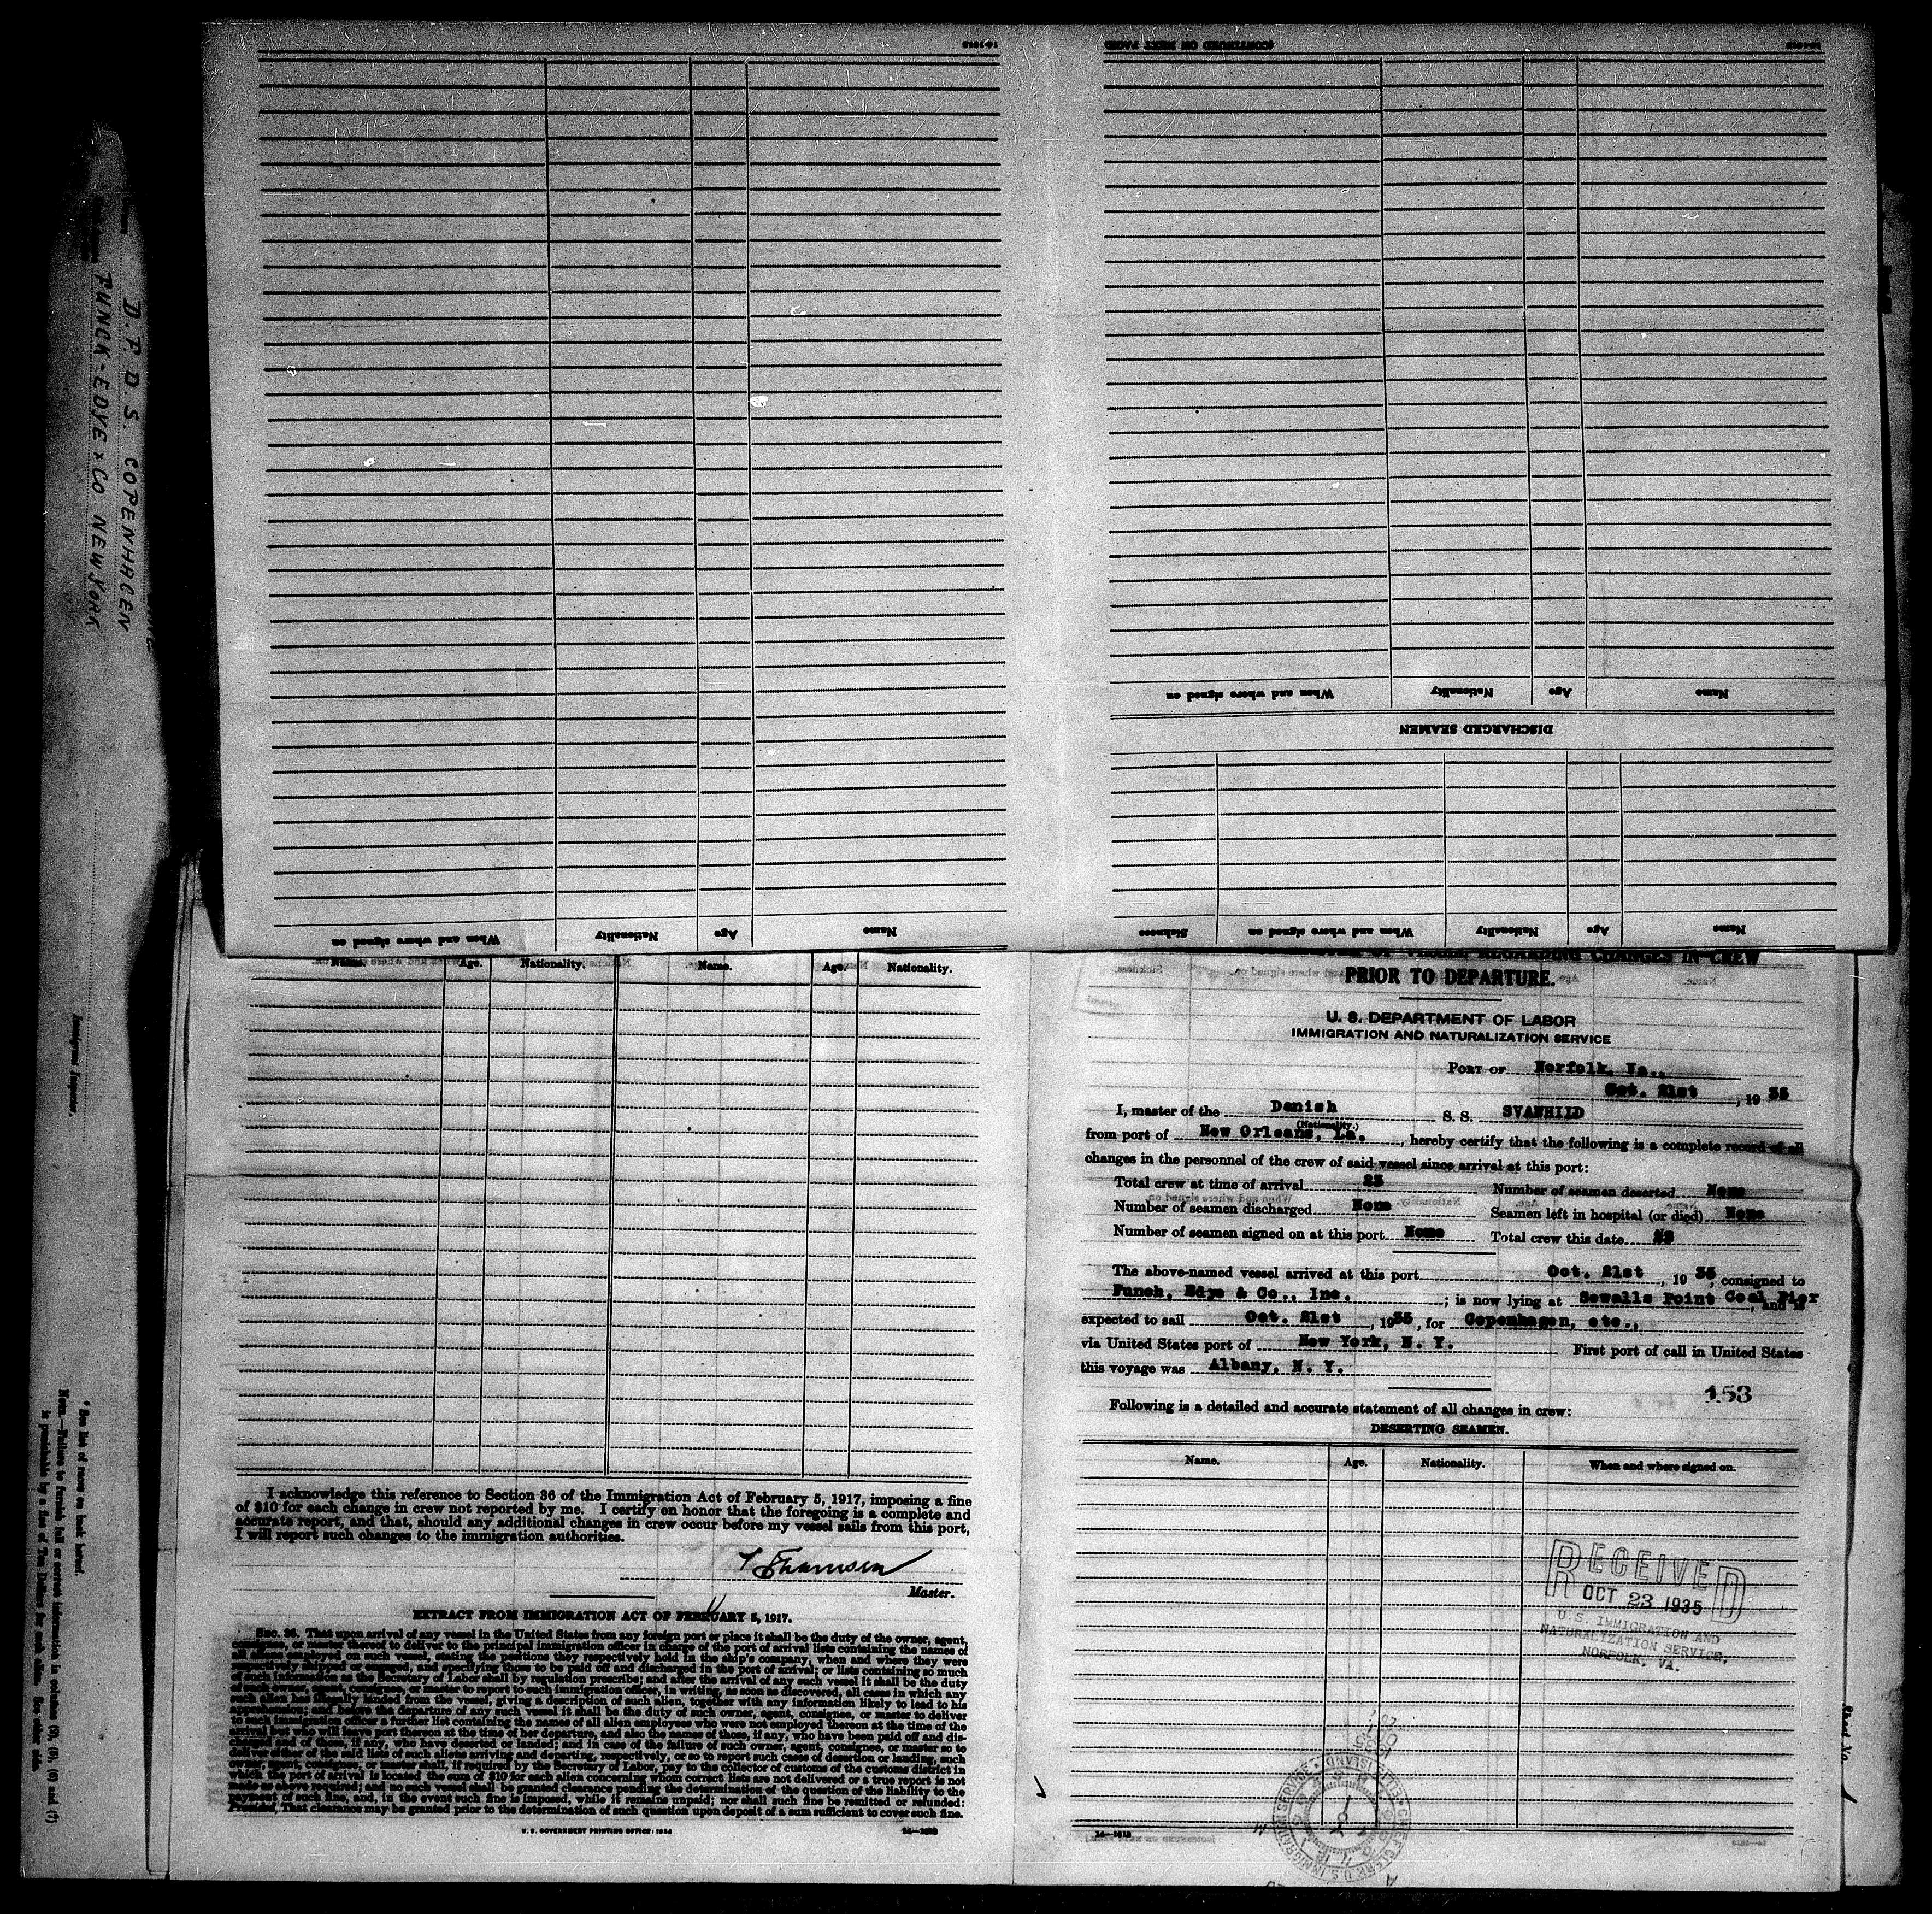 D. F. D. S. COPENHAGEN
FUNCK-EDYE & CO NEW YORK
Immigrant Inspector.
* See list of races on back hereof.
is punishable by a fine of Ten Dollars for each alien. See other side.
(CONTINUED ON NEXT PAGE)
When and where signed on
Nationality
Age
Name
DISCHARGED SEAMEN
When and where signed on
Nationality
Age
Name
Sickness
When and where signed on
Nationality
Age
Name
Name. Age. Nationality. Name. Age. Nationality.
I acknowledge this reference to Section 36 of the Immigration Act of February 5, 1917, imposing a fine
of $10 for each change in crew not reported by me. I certify on honor that the foregoing is a complete and
accurate report, and that, should any additional changes in crew occur before my vessel sails from this port,
I will report such changes to the immigration authorities.
Thomsen
Master.
EXTRACT FROM IMMIGRATION ACT OF FEBRUARY 5, 1917.
SEC. 36. That upon arrival of any vessel in the United States from any foreign port or place it shall be the duty of the owner, agent,
consignee, or master thereof to deliver to the principal immigration officer in charge of the port of arrival lists containing the names of
all aliens employed on such vessel, stating the positions they respectively hold in the ship's company, when and where they were
respectively shipped or engaged, and specifying those to be paid off and discharged in the port of arrival; or lists containing so much
of such information as the Secretary of Labor shall by regulation prescribe; and after the arrival of any such vessel it shall be the duty
of such owner, agent, consignee, or master to report to such immigration officer, in writing, as soon as discovered, all cases in which any
such alien has illegally landed from the vessel, giving a description of such alien, together with any information likely to lead to his
apprehension; and before the departure of any such vessel it shall be the duty of such owner, agent, consignee, or master to deliver
to such immigration officer a further list containing the names of all alien employees who were not employed thereon at the time of the
arrival but who will leave port thereon at the time of her departure, and also the names of those, if any, who have been paid off and dis-
charged and of those, if any, who have deserted or landed; and in case of the failure of such owner, agent, consignee, or master so to
deliver either of the said lists of such aliens arriving and departing, respectively, or so to report such cases of desertion or landing, such
owner, agent, consignee, or master shall, if required by the Secretary of Labor, pay to the collector of customs of the customs district in
which the port of arrival is located the sum of $10 for each alien concerning whom correct lists are not delivered or a true report is not
made as above required; and no such vessel shall be granted clearance pending the determination of the question of the liability to the
payment of such fine, and, in the event such fine is imposed, while it remains unpaid; nor shall such fine be remitted or refunded:
Provided, That clearance may be granted prior to the determination of such question upon deposit of a sum sufficient to cover such fine.
U. S. GOVERNMENT PRINTING OFFICE: 1934
REGARDING CHANGES IN CREW
PRIOR TO DEPARTURE.
U. S. DEPARTMENT OF LABOR
IMMIGRATION AND NATURALIZATION SERVICE
PORT OF Norfolk, Va.,
Oct. 21st, 19 35
I, master of the Danish S. S. SVANHILD
(Nationality.)
from port of New Orleans, La., hereby certify that the following is a complete record of all
changes in the personnel of the crew of said vessel since arrival at this port:
Total crew at time of arrival 23 Number of seamen deserted None
Number of seamen discharged None Seamen left in hospital (or died) None
Number of seamen signed on at this port None Total crew this date 23
The above-named vessel arrived at this port Oct. 21st, 19 35, consigned to
Funch, Edye & Co., Inc.; is now lying at Sewalls Point Coal Pier, and is
expected to sail Oct. 21st, 1935, for Copenhagen, etc.,
via United States port of New York, N. Y. First port of call in United States
this voyage was Albany, N. Y.
153
Following is a detailed and accurate statement of all changes in crew:
DESERTING SEAMEN.
Name. Age. Nationality. When and where signed on.
RECEIVED
OCT 23 1935
U.S. IMMIGRATION AND
NATURALIZATION SERVICE,
NORFOLK, VA.
Sheet No.